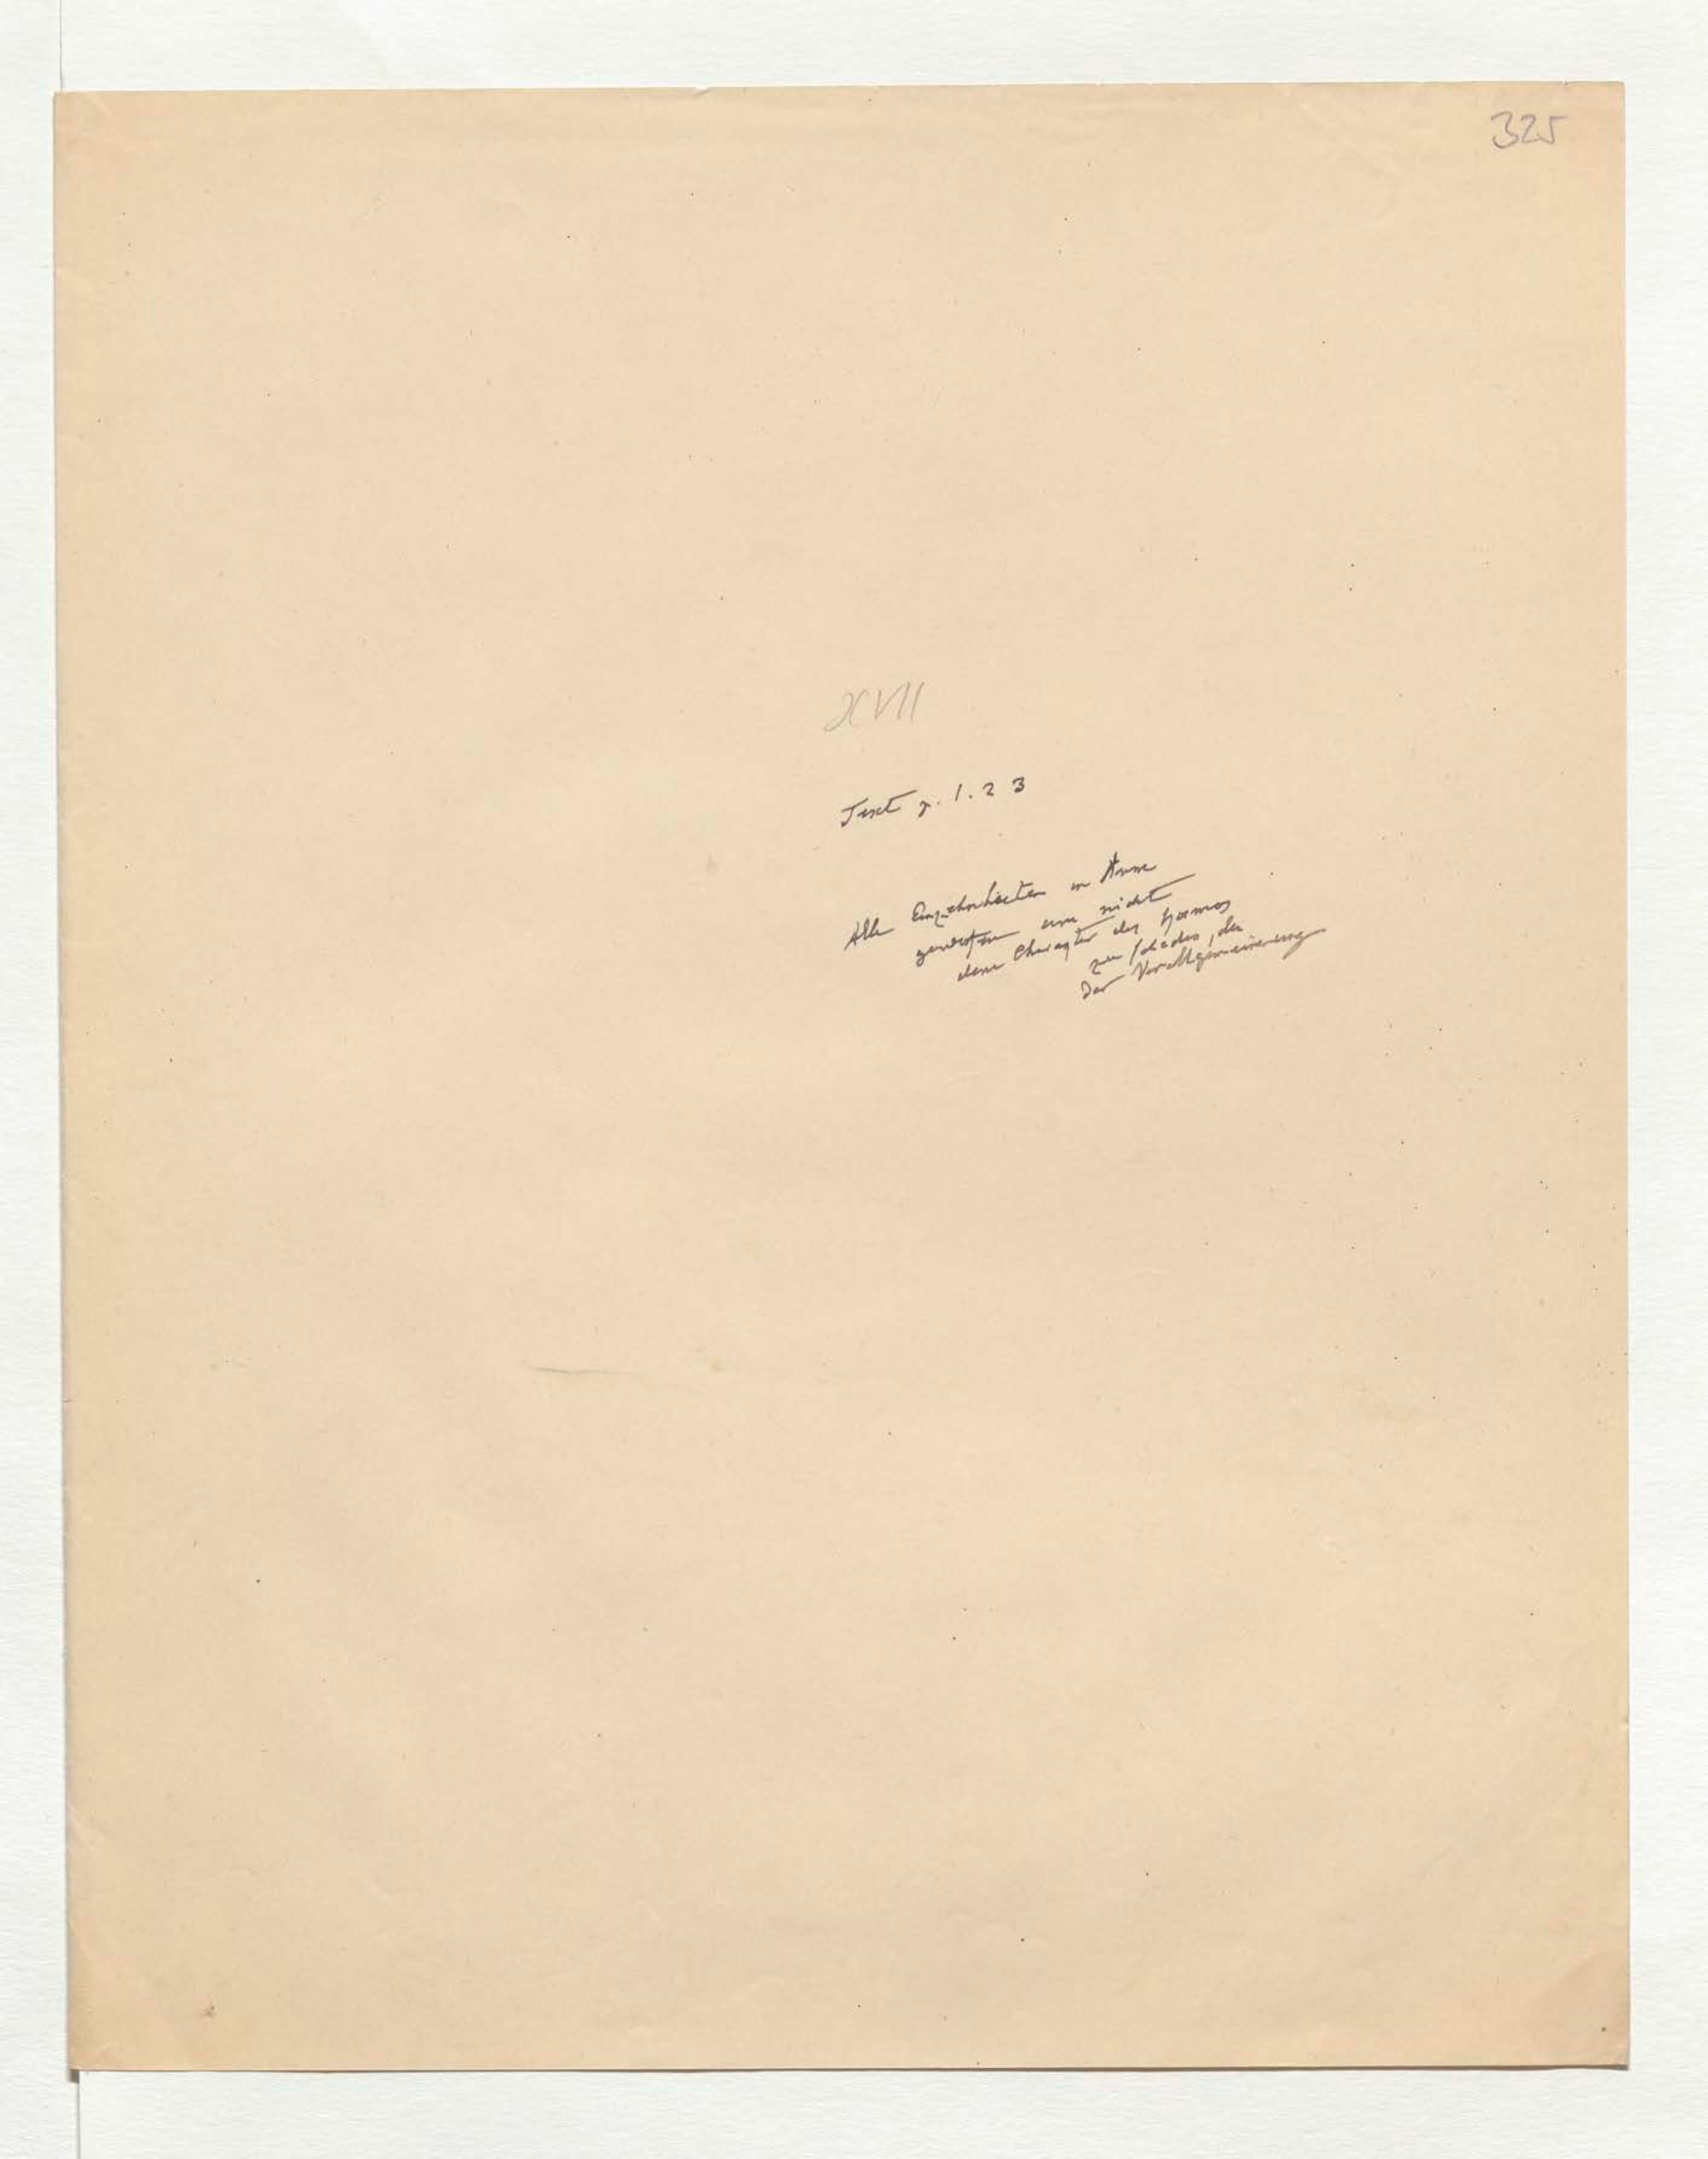 325
XVII
Text p. 1. 2 3
Alle Einzelnheiten in Anm
geworfen um nicht
dem Charakter des Kosmos
zu schaden, der
der Verallgemeinerung